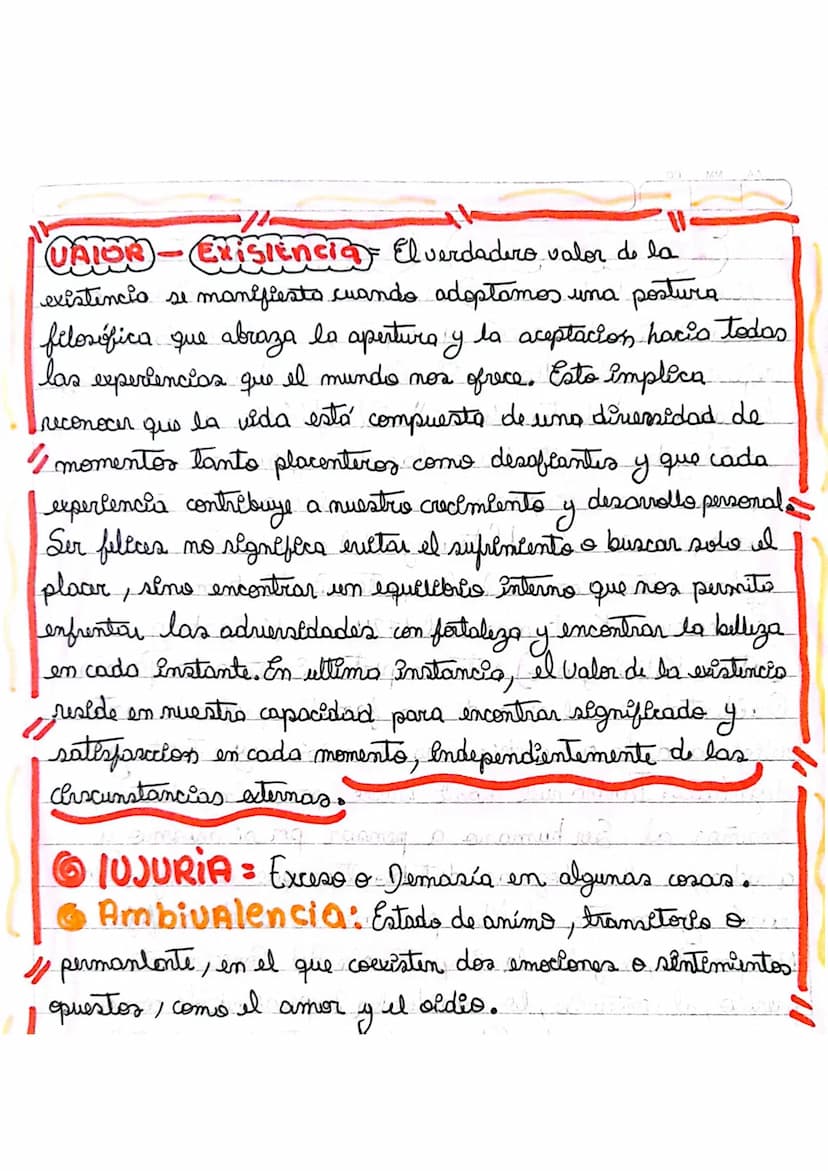 VALOR - Existencia = El verdadero valor de la
existencia se manifiesta cuando adoptamos una postura
filosófica que abraza la apertura y la aceptacion hacia todas
las experiencias que el mundo nos ofrece. Esto implica
reconocer que la vida está compuesta de una diversidad de
momentos tanto placenteros como desafiantes y que cada
experiencia contribuye a nuestro crecimiento y desarrollo personal.
Ser felices no significa evitar el sufrimiento o buscar solo el
placer, sino encontrar un equilibrio interno que nos permita
enfrentar las adversidades con fortaleza y encontrar la belleza
en cada instante. En ultima instancia, el valor de la existencia
reside en nuestra capacidad para encontrar significado y
satisfaccion en cada momento, independientemente de las
circunstancias externas.
lUJURiA = Exceso o Demasía en algunas cosas.
AmbiVAlencia: Estado de animo, transitorio o
permanente, en el que coexisten dos emociones o sentimientos
opuestos, como el amor y el oidio.